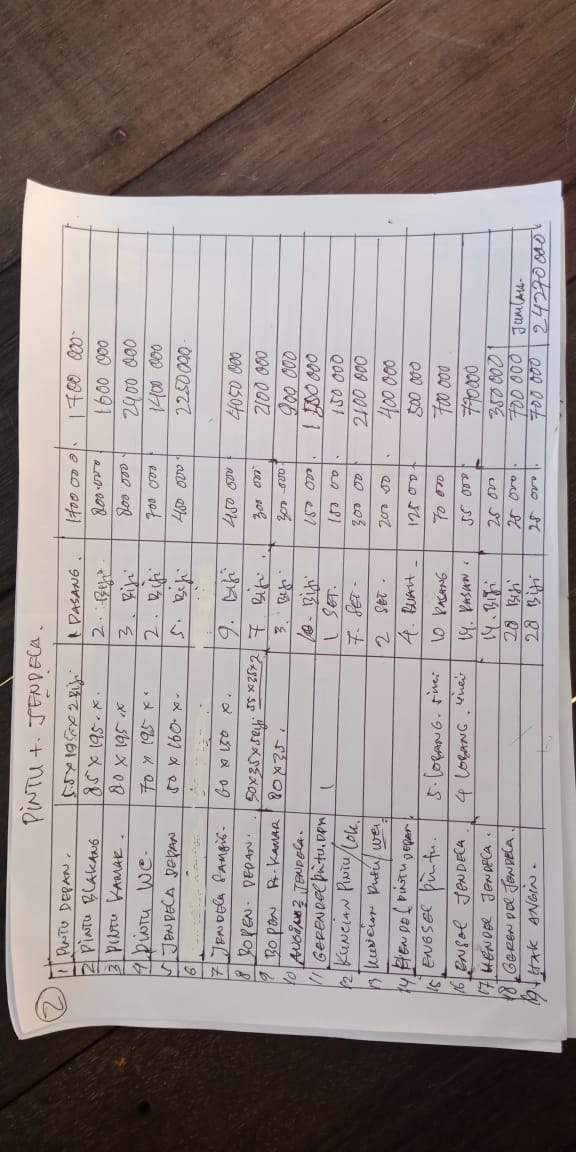 2
PINTU + JENDELA.
1 PINTU DEPAN. 55X195X2 Biji 1 PASANG. 1700 000. 1 700 000.
2 PINTU BLAKANG 85 X 195. x. 2. Biji 800.000 1600 000
3 PINTU KAMAR. 80 X 195.x 3. Biji 800 000 2400 000
4 PINTU WC. 70 x 195 x. 2. Biji 700 000 1400 000
5 JENDELA DEPAN 50 x 160. x. 5. Biji 450 000. 2250000.
6
7 JENDELA 60 x 150 x. 9. Biji 450 000 4050 000
8 BOPEN. DEPAN. 50X35x5Biji 55x35x2 7 Biji. 300 000 2100 000
9 BOPEN P. KAMAR 80X35. 3. Biji 300.000 900 000
10 JENDELA. 10. Biji 150 000. 1 500 000
11 GERENDEL pintu.DPN 1 1 SET. 150 00. 150 000
12 KUNCIAN PINTU/LOK. 7. SET. 300 00 2100 000
13 KUNCIAN Pintu/wc. 2 SET. 200 00. 400 000
14 HENDEL PINTU DEPAN 4. BUAH - 125 00 500 000
15 ENGSEL pintu. 5. LOBANG. 5inci 10 PASANG 70 000 700 000
16 ENSOL JENDELA. 4 LOBANG. 4inci 14. PASAN. 55 000 770000
17 HENDEL JENDELA. 14. Biji 25 000 350000
18 GERENDEL JENDELA. 28 Biji 25 000. 700 000 Jumlah.
19 HAK ANGIN. 28 Biji 25 000. 700 000 24270000